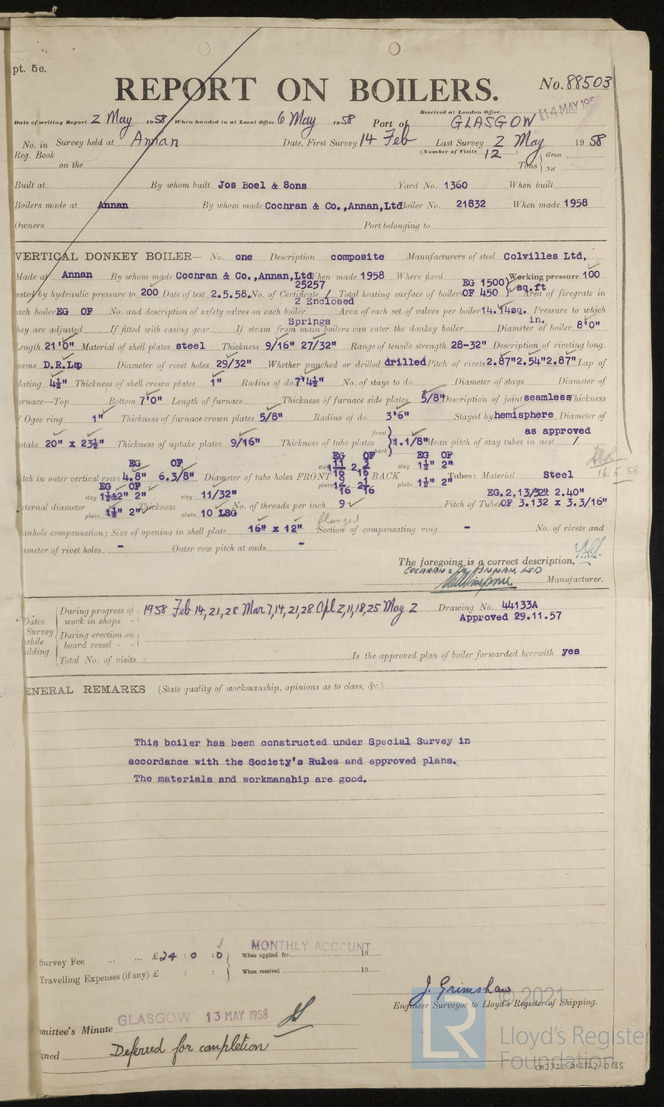 pt. 5e.
REPORT ON BOILERS.
No. 88503
Received at London Office 14 MAY 195
Date of writing Report 2 May 1958 When handed in at Local Office 6 May 1958 Port of GLASGOW
No. in Survey held at Annan Date, First Survey 14 Feb Last Survey 2 May 1958
Reg. Book (Number of Visits 12 )
on the Tons Gross Net
Built at By whom built Jos Boel & Sons Yard No. 1360 When built
Boilers made at Annan By whom made Cochran & Co.,Annan,Ltd Boiler No. 21832 When made 1958
Owners Port belonging to
VERTICAL DONKEY BOILER— No. one Description composite Manufacturers of steel Colvilles Ltd,
Made at Annan By whom made Cochran & Co.,Annan,Ltd When made 1958 Where fixed Working pressure 100
ested by hydraulic pressure to 200 Date of test 2.5.58. No. of Certificate 25257 Total heating surface of boiler EG 1500 OF 450 sq.ft Area of firegrate in
ach boiler EG OF No. and description of safety valves on each boiler 2 Enclosed Springs Area of each set of valves per boiler 14.14 sq. in. Pressure to which
hey are adjusted If fitted with easing gear If steam from main boilers can enter the donkey boiler Diameter of boiler 8'0"
Length 21'0" Material of shell plates steel Thickness 9/16" 27/32" Range of tensile strength 28-32" Description of riveting long.
ams D.R.Lap Diameter of rivet holes 29/32" Whether punched or drilled drilled Pitch of rivets 2.87"2.54"2.87" Lap of
lating 4½" Thickness of shell crown plates 1" Radius of do 7'4½" No. of stays to do. Diameter of stays Diameter of
urnace—Top Bottom 7'0" Length of furnace Thickness of furnace side plates 5/8" Description of joint seamless Thickness
f Ogee ring 1" Thickness of furnace crown plates 5/8" Radius of do. 3'6" Stayed by hemisphere Diameter of
ptake 20" x 23½" Thickness of uptake plates 9/16" Thickness of tube plates front back 1.1/8" Mean pitch of stay tubes in nest as approved
EG OF EG OF EG OF
itch in outer vertical rows 4.8" 6.3/8" Diameter of tube holes FRONT stay plain BACK stay 1½" 2" plain 1½" 2" Tubes: Material Steel
EG OF
xternal diameter stay 1½&2" 2" plain 1½" 2" Thickness stay 11/32" plain 10 LSG No. of threads per inch 9 Pitch of Tubes EG. 2.13/32 2.40" OF 3.132 x 3.3/16"
anhole compensation; Size of opening in shell plate 16" x 12" flanged Section of compensating ring - No. of rivets and
iameter of rivet holes - Outer row pitch at ends -
16.5.58
The foregoing is a correct description,
COCHRAN & Co., ANNAN, LTD
Manufacturer.
Dates Survey while ilding
During progress of work in shops - - 1958 Feb 14,21,28 Mar 7,14,21,28 Apl 2,11,18,25 May 2
Drawing No. 44133A
Approved 29.11.57
During erection on board vessel - - -
Total No. of visits Is the approved plan of boiler forwarded herewith yes
ENERAL REMARKS (State quality of workmanship, opinions as to class, &c.)
This boiler has been constructed under Special Survey in
accordance with the Society's Rules and approved plans.
The materials and workmanship are good.
MONTHLY ACCOUNT
Survey Fee ... ... £24 : 0 : 0 When applied for 19
Travelling Expenses (if any) £ : : When received 19
J. Grimshaw
Engineer Surveyor to Lloyd's Register of Shipping.
2021
mmittee's Minute GLASGOW 13 MAY 1958
gned Deferred for completion
LR Lloyd's Register
Foundation